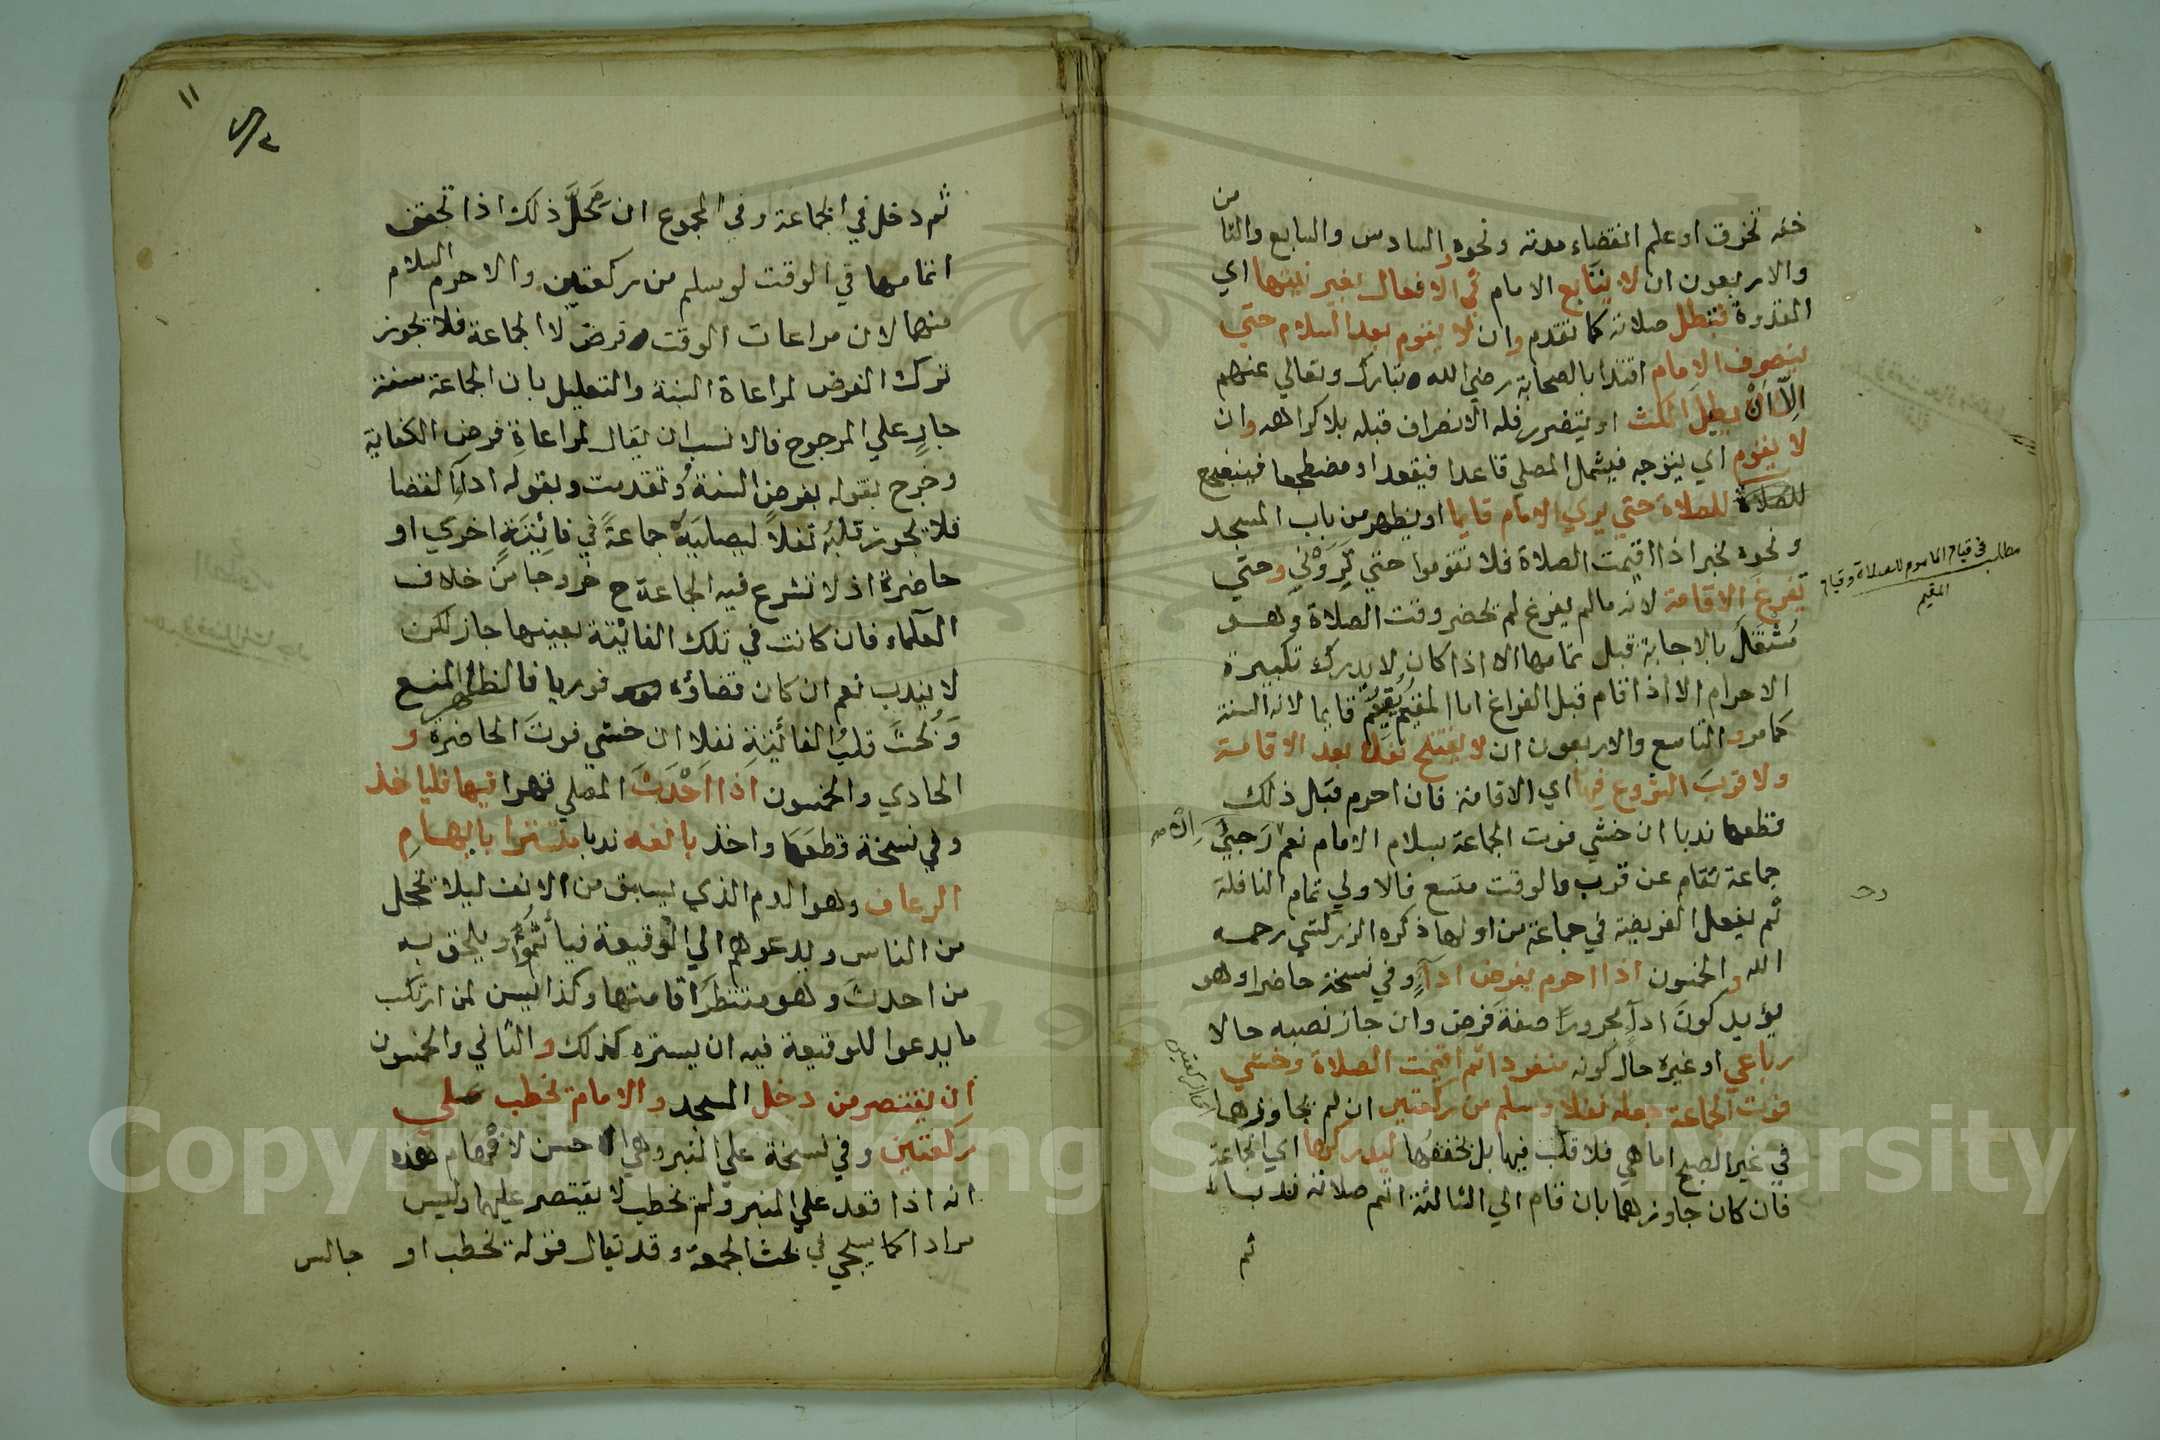 خفه تخرق او علم انقضاء مدته ونحوه والسادس والسابع والثامن
والاربعون ان لا يتابع الامام في الافعال بغير نيتها اي
القدوة فتبطل صلاته كما تقدم وان لا يقوم بعد السلام حتي
ينصرف الامام اقتدا بالصحابة رضي الله تبارك وتعالي عنهم
الا ان يطيل المكث او يتضرر فله الانصراف قبله بلا كراهه وان
لا يقوم اي يتوجه فيشمل المصلي قاعدا فيقعد او مضطجعا فيضطجع
للصلاة للصلاة حتي يري الامام قايما او يظهر من باب المسجد
ونحوه لخبر اذا اقيمت الصلاة فلا تقوموا حتي تروني وحتي
تفرغ الاقامة لانه مالم يفرغ لم يحضر وقت الصلاة وهو
مشتغل بالاجابة قبل تمامها الا اذا كان لا يدرك تكبيرة
الاحرام الا اذا قام قبل الفراغ اما المقيم فيقيم قايما لانه السنة
كما مر والتاسع والاربعون ان لا يفتتح نفلا بعد الاقامة
ولا قرب الشروع فيها اي الاقامة فان احرم قبل ذلك
قطعها ندبا ان خشي فوت الجماعة بسلام الامام نعم ان رجي
جماعة تقام عن قرب والوقت متسع فالاولي تمام النافلة
ثم يفعل الفريضة في جماعة من اولها ذكره الزركشي رحمه
الله والخمسون اذا احرم بفرض اداء وفي نسخة حاضرا وهو
يؤيد كون اداء مجرورا صفة فرض وان جاز نصبه حالا
رباعي او غيره حال كونه منفردا ثم اقيمت الصلاة وخشي
فوت الجماعة جعله نفلا وسلم من ركعتين ان لم يجاوزهما
في غير الصبح اما هي فلا قلب فيها بل يخففها ليدركها اي الجماعة
فان كان جاوزهما بان قام الي الثالثة اتم صلاته ندبا
ثم
مطلب في قيام الماموم للصلاة وقيام
المقيم
اي الركعتين
١١
ثم دخل في الجماعة وفي المجموع ان محل ذلك اذا تحقق
اتمامها في الوقت لو سلم من ركعتين والا حرم السلام
منها لان مراعات الوقت فرض لا الجماعة فلا تجوز
ترك الفرض لمراعاة السنة والتعليل بان الجماعة سنة
جار علي المرجوح فالانسب ان يقال لمراعاة فرض الكفاية
وخرج بقوله بفرض السنة وتقدمت وبقوله اداء القضا
فلا تجوز قلبه نفلا ليصليه جماعة في فائتة اخري او
حاضرة اذ لا تشرع فيه الجماعة ح خروجا من خلاف
العلماء فان كانت في تلك الفائتة بعينها جاز لكن
لا يندب نعم ان كان قضاؤه فوريا فالظاهر المنع
ويجب قلب الفائتة نفلا ان خشي فوت الحاضرة و
الحادي والخمسون اذا احدث المصلي قهرا فيها فلياخذ
وفي نسخة قطعها واخذ بانفه ندبا متسترا بايهام
الرعاف وهو الدم الذي يسبق من الانف ليلا يخجل
من الناس ويدعوهم الي الوقيعة فيأثموا ويلحق به
من احدث وهو منتظر اقامتها وكذا يسن لمن ارتكب
ما يدعوا للوقيعة فيه ان يستره كذلك والثاني والخمسون
ان يقتصر من دخل المسجد والامام يخطب علي
ركعتين وفي نسخة علي المنبر وهي احسن لافهام هذه
انه اذا قعد علي المنبر ولم يخطب لا يقتصر عليهما وليس
مرادا كما سيجي في بحث الجمعة وقد يقال قوله يخطب او جالس
Copyright © King Saud University
1957